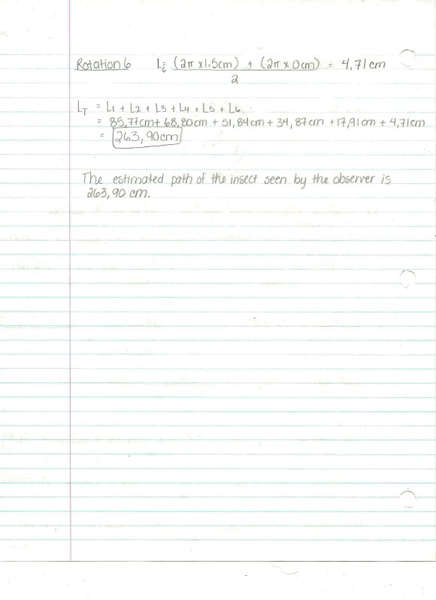 Rotation 6 L6 (2π x 1.5cm) + (2π x 0cm) = 4,71 cm
2
LT = L1 + L2 + L3 + L4 + L5 + L6
= 85,77cm + 68,80cm + 51,84cm + 34,87cm + 17,91cm + 4,71cm
= 263,90cm
The estimated path of the insect seen by the observer is
263,90 cm.